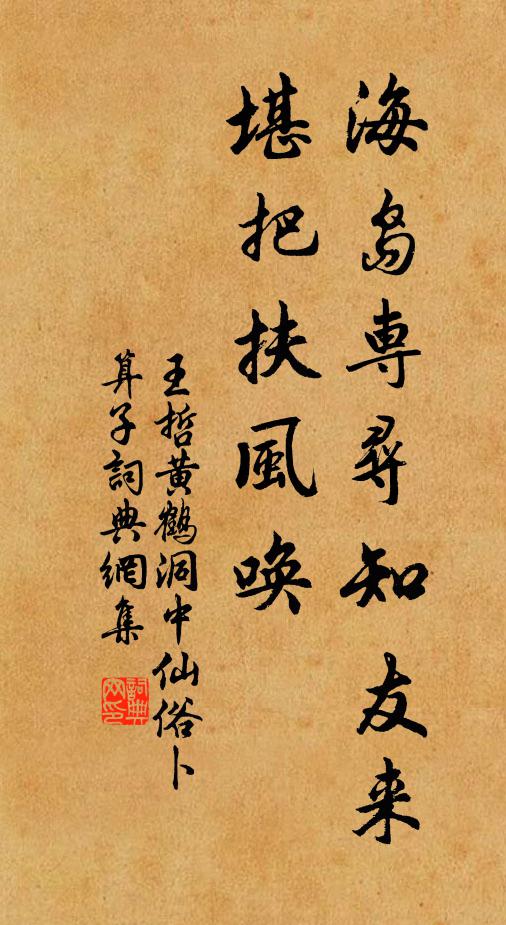 海島專尋知友来
堪把扶風喚
王哲黄鶴洞中仙俗卜
算子詞典網集
詞典網印